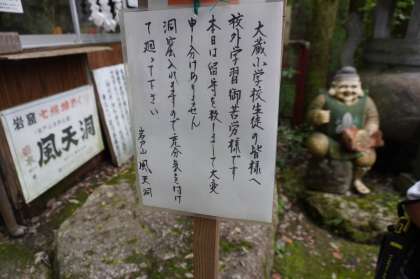 大蔵小学校生徒の皆様へ
校外学習御苦労様です
本日は留守を致しまして大変
申し分けありません
洞窟入れますので充分気を付け
て廻って下さい
岩戸山 風天洞
岩窟
七福神めぐり
風天洞